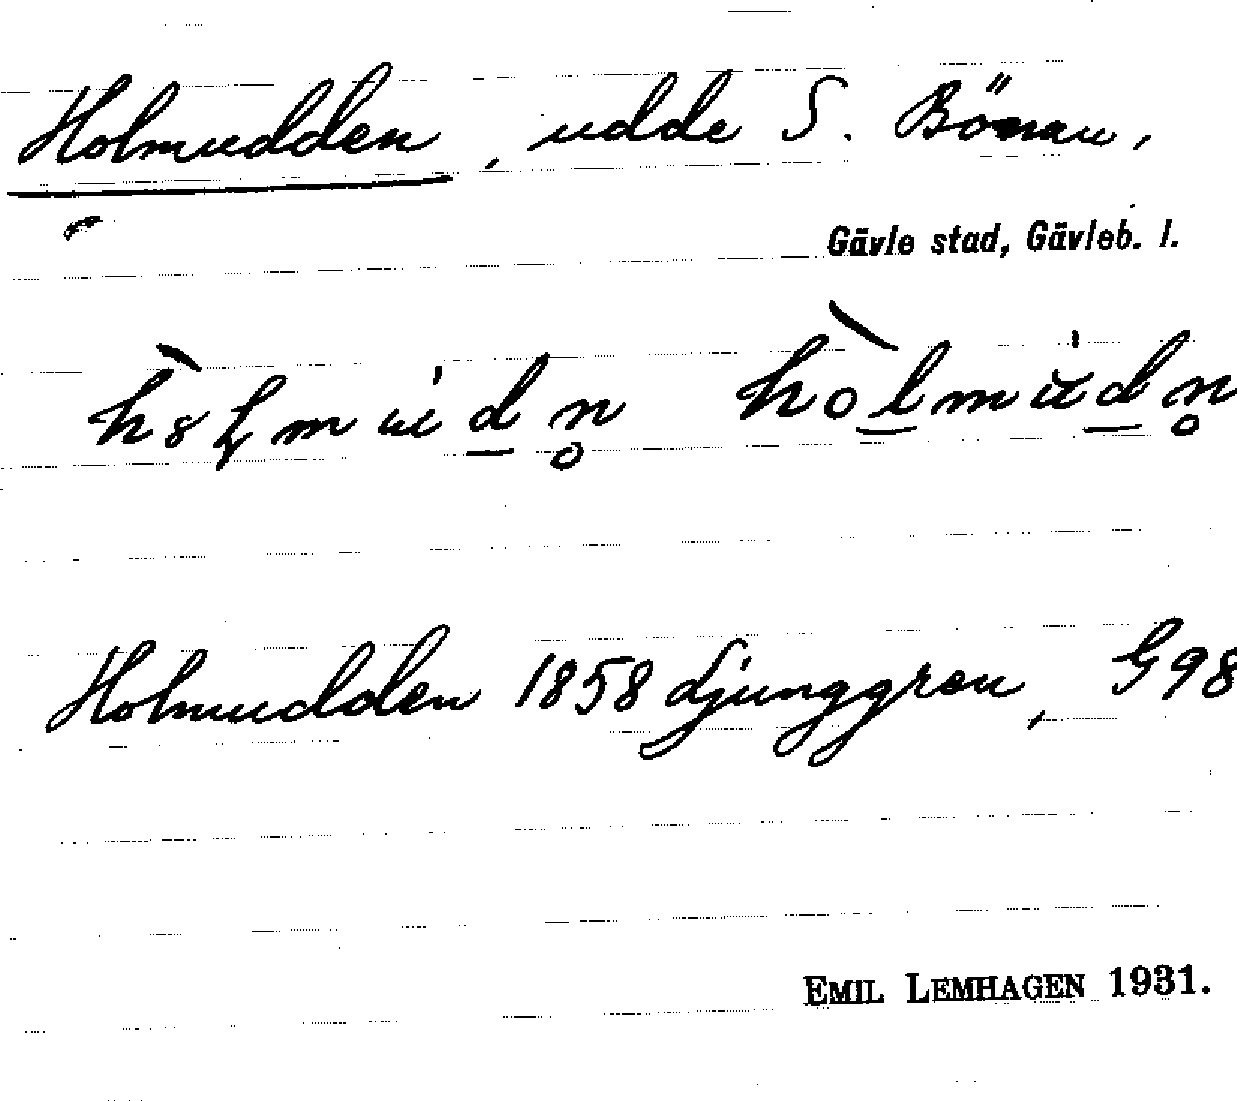 Holmudden, udde S. Bönan,
Gävle stad, Gävleb. l.
Holmudden 1858 Ljunggren, G98
EMIL LEMHAGEN 1931.